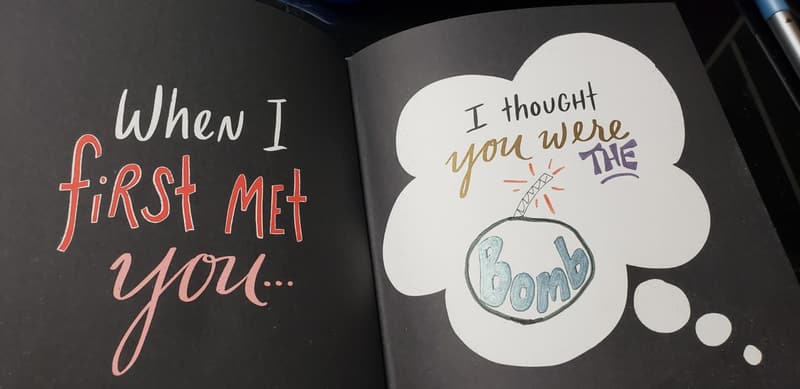 When I
first met
you...
I thought
you were
THE
Bomb